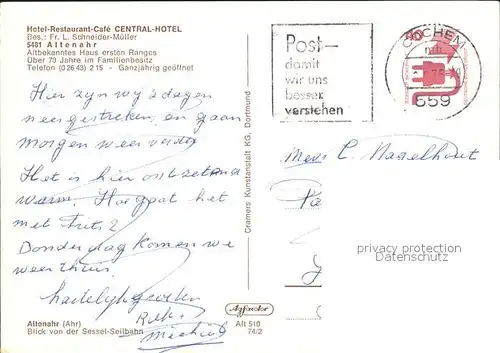 Hotel-Restaurant-Café CENTRAL-HOTEL
Bes.: Fr. L. Schneider-Müller
5481 Altenahr
Altbekanntes Haus ersten Ranges
Über 70 Jahre im Familienbesitz
Telefon (0 26 43) 2 15 - Ganzjährig geöffnet
Hier zyn wy 3 dagen
neergestreken, en gaan
morgen weer verder
Het is hier ontzettend
warm. Hoe gaat het
met Frits?
Donderdag komen we
weer thuis.
hartelyke groeten
Altenahr (Ahr)
Blick von der Sessel-Seilbahn
Alt 510
74/2
Cramers Kunstanstalt KG, Dortmund
Post-
damit
wir uns
besser
verstehen
COCHEM
559
Mevr C. Nagelhout
privacy protection
Datenschutz